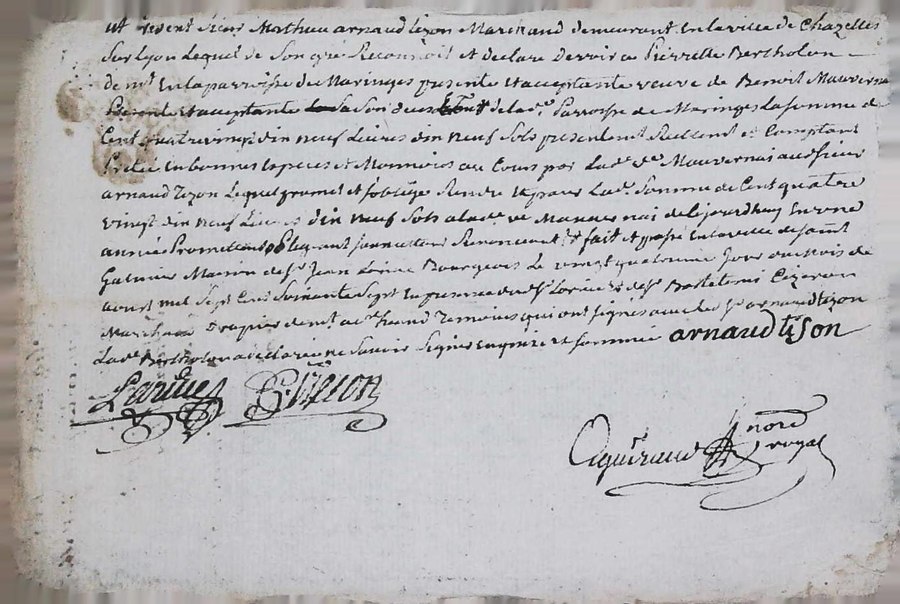 ut present Sieur Mathieu arnaud tizon Marchand demeurant En la ville de Chazelles
Sur Lyon Lequel de Son gré Reconnoit et declare Devoir a Pierrette Bertholon
de mt En la parroisse de Maringes presente et acceptante veuve de Benoit Mauverna
presente et acceptante de lad. Parroisse de Maringes La Somme de
Cent quatre vingt dix neuf Livres dix neuf Sols presentemt et Comptant
En bonnes Especes et Monnoies au Cours par Lad. ve Mauvernai audsieur
arnaud tizon Lequel promet et s'oblige Rendre et payer Lad. Somme de Cent quatre
vingt dix neuf Livres dix neuf Sols a lade. ve Mauvernai de Cejourdhuy En une
année Promettant obligeant Renoncent & fait et passé En la ville de saint
Galmier Maison de Sr. Jean Bourgeois Le vingt quatrieme Jour du Mois de
aoust mil Sept Cent Soixante Sept En presence dud. Sr. & de Sr. Barthelemi
Marchand Drapier de mt. Temoins qui ont signés avec led. Sr. arnaud tizon
Lad. Bertholon a declaré ne Savoir Signer Enquise et Sommée arnaud tison
nore
royal